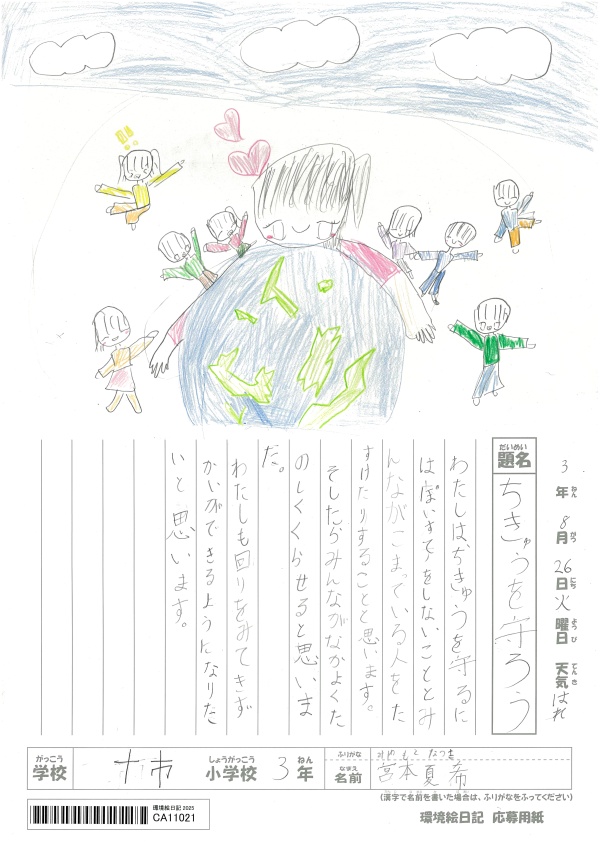 3年 8月 26日 火曜日 天気 はれ
ねん がつ にち ようび てんき
だいめい
題名 ちきゅうを守ろう
わたしは、ちきゅうを守るに
はぽいすてをしないこととみ
んながこまっている人をた
すけたりすることと思います。
そしたらみんながなかよくた
のしくくらせると思いま
だ。
わたしも回りをみてきず
かいができるようになりた
いと思います。
がっこう しょうがっこう ねん ふりがな みやもと なつき
学校 十市 小学校 3年 なまえ 名前 宮本夏希
(漢字で名前を書いた場合は、ふりがなをふってください)
環境絵日記 2025
CA11021
環境絵日記 応募用紙